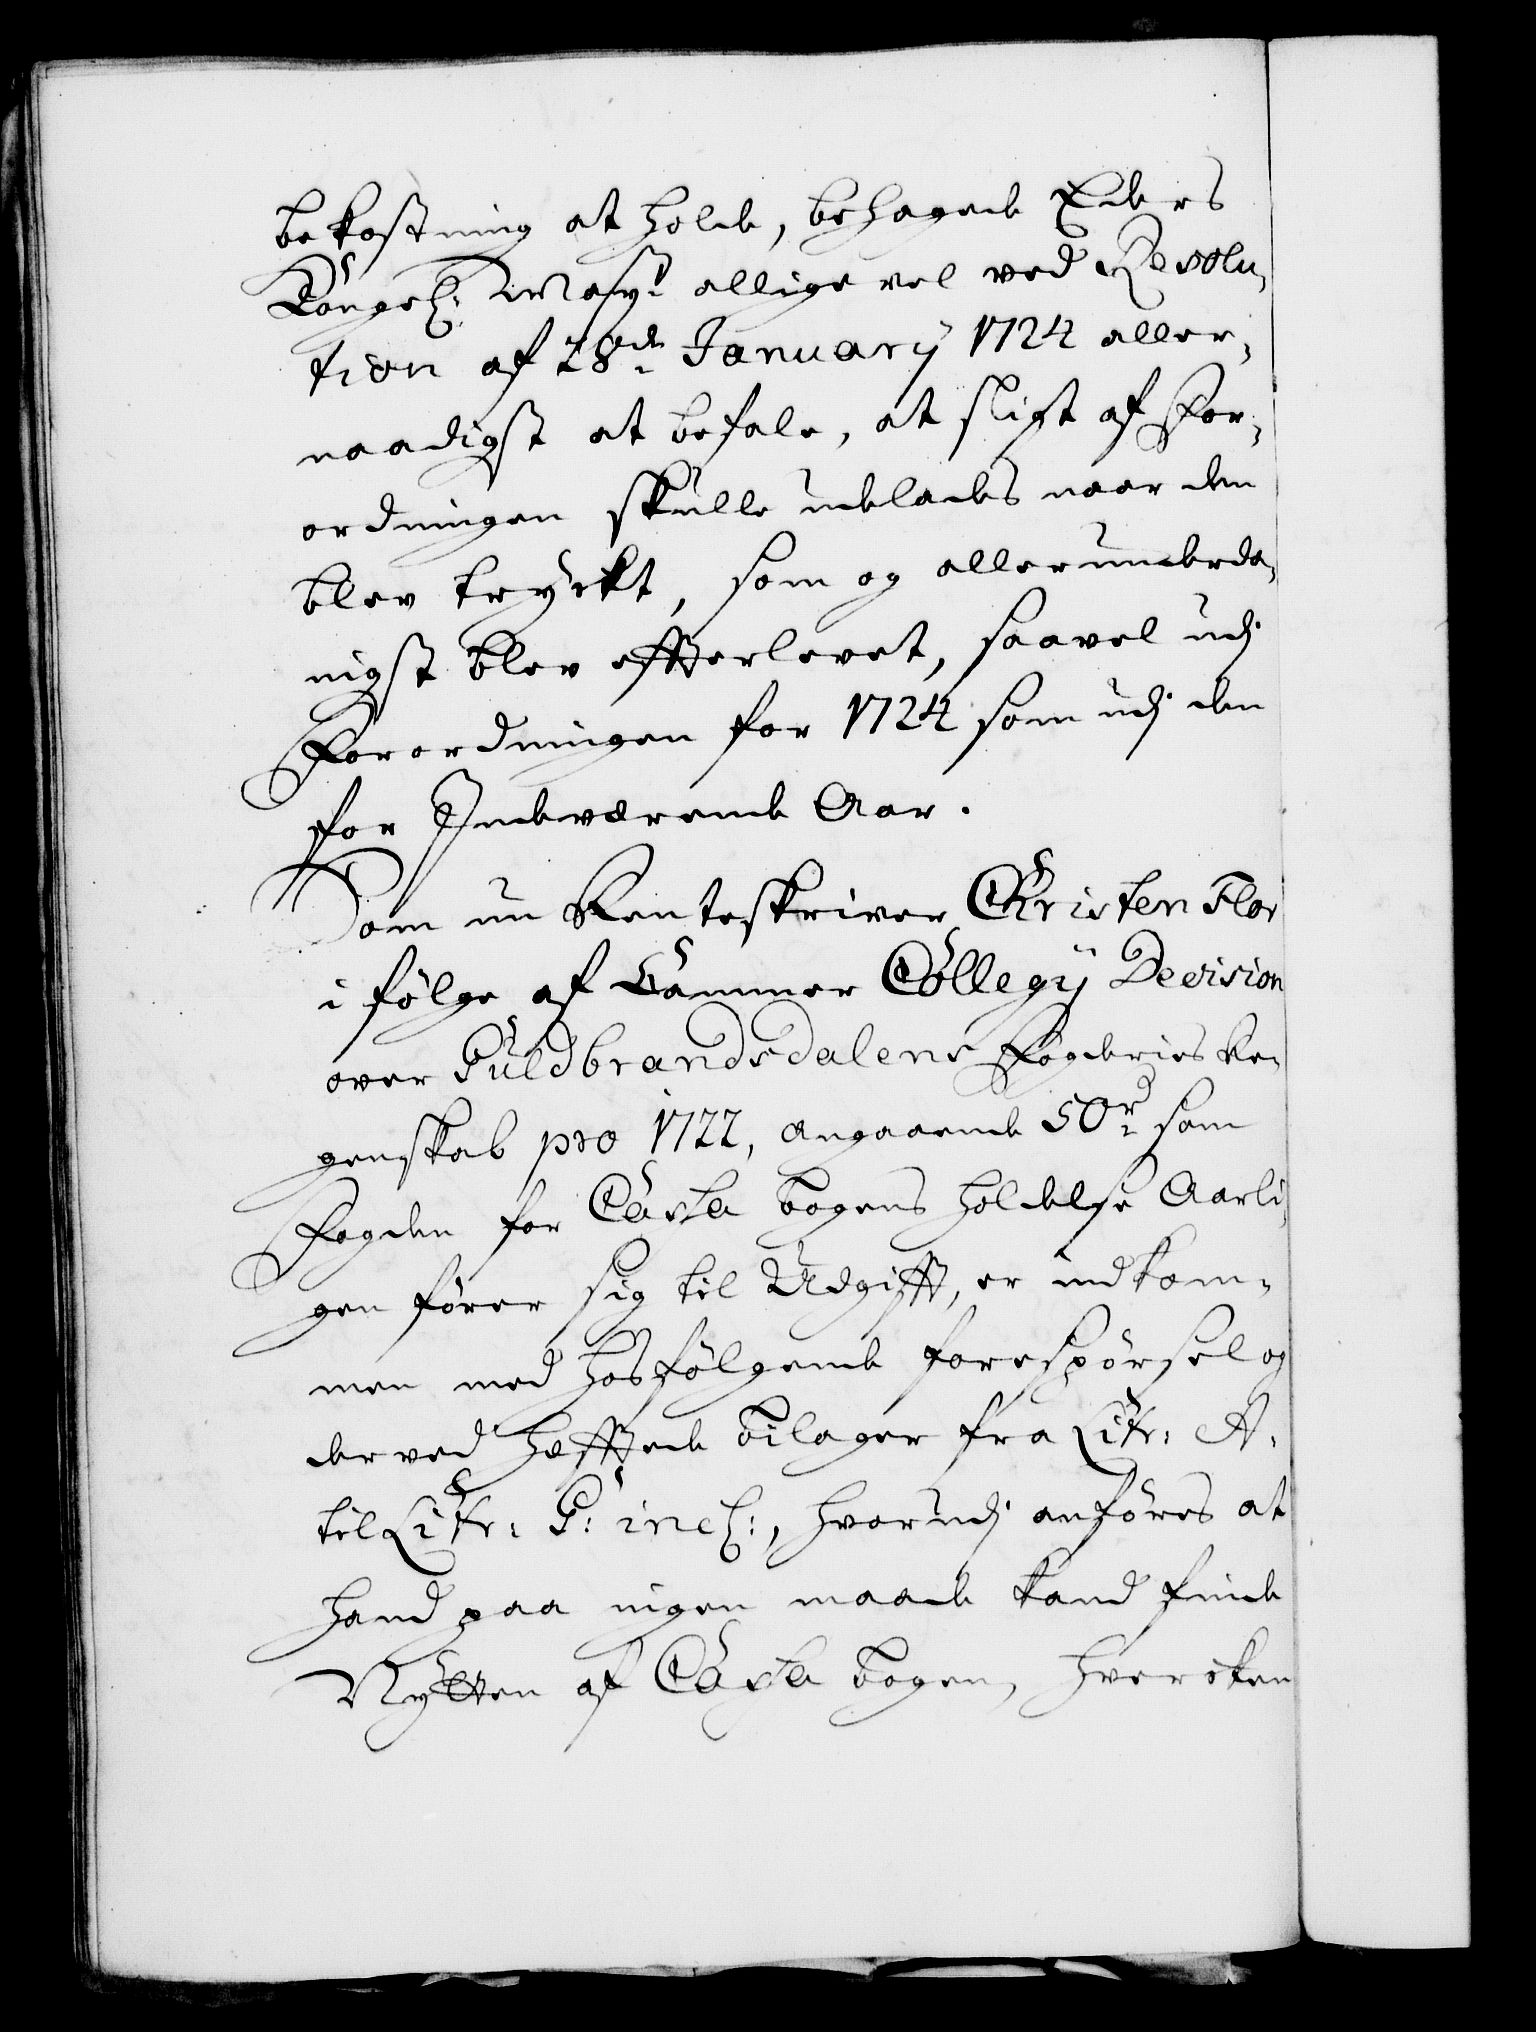 bekostning at holde, behagede Eders
Kongel: Mayt: allige vel ved Resolu-
tion af 28de January 1724 aller-
naadigst at befale, at sligt af For-
ordningen skulle udelades naar den
blev tryckt, som og allerunderda-
nigst blev effterlevet, saavel udj
Forordningen for 1724 som udj den
for Indeværende Aar.
Som nu Renteskriver Christen Flor
i følge af Cammer Collegy Decision
over Guldbrandsdalens Fogderies Re-
genskab pro 1722, angaaende 50 rd: som
Fogden for Cassa bogens holdelse Aarli-
gen fører sig til Udgifft, er indkom-
men med hosfølgende forespørsel og
derved hefftede bilager fra Litr: A.
til Litr: G: incl:, hvorudj anføres at
hand paa ingen maade kand finde
Nytten af Cassa bogen, hvercken